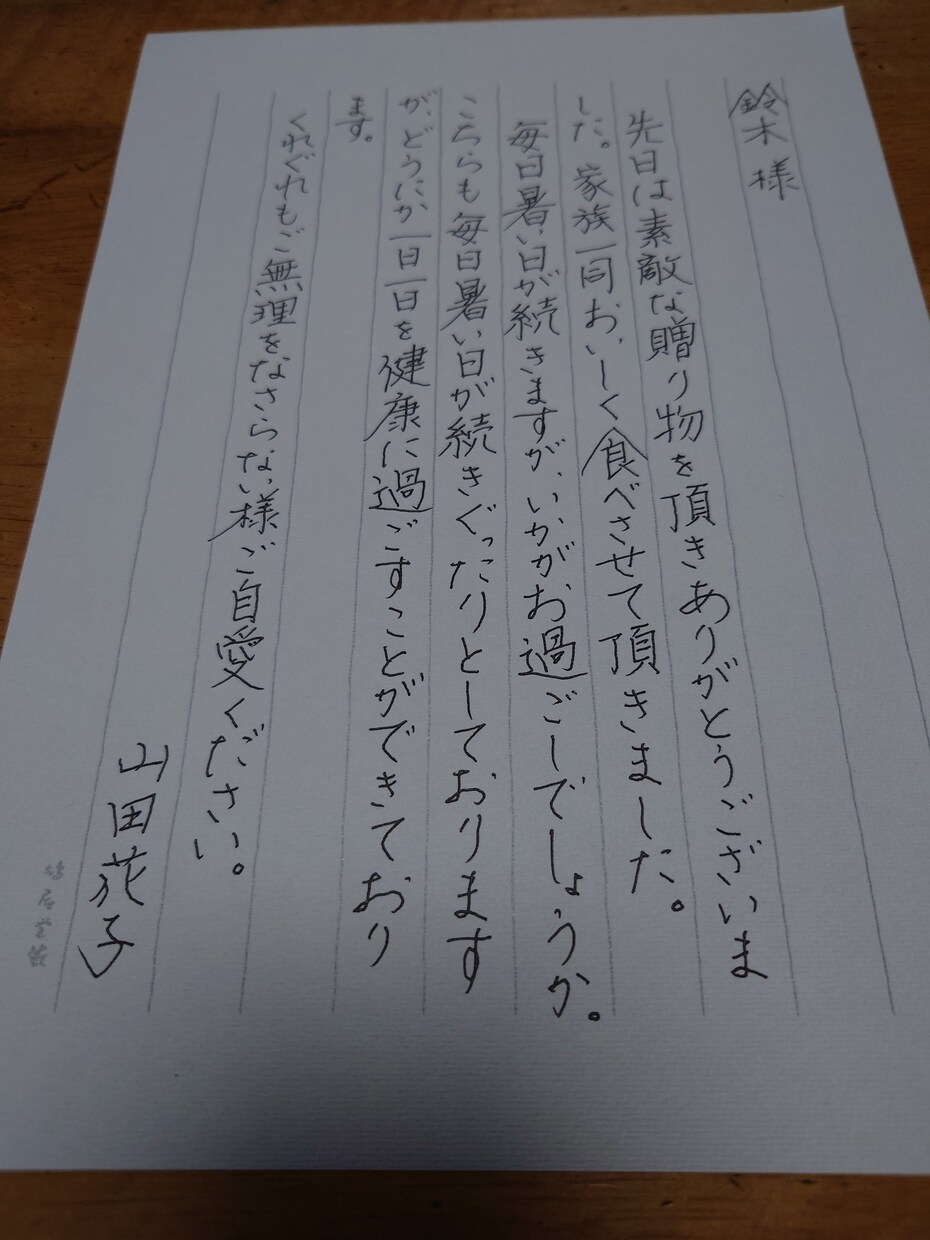 鈴木様
先日は素敵な贈り物を頂きありがとうございま
した。家族一同おいしく食べさせて頂きました。
毎日暑い日が続きますが、いかがお過ごしでしょうか。
こちらも毎日暑い日が続きぐったりとしております
が、どうにか一日一日を健康に過ごすことができており
ます。
くれぐれもご無理をなさらない様ご自愛ください。
山田花子
鳩居堂製